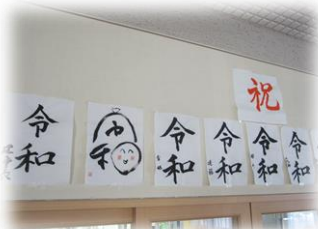 祝
令和
令和
令和
令和
令和
令和